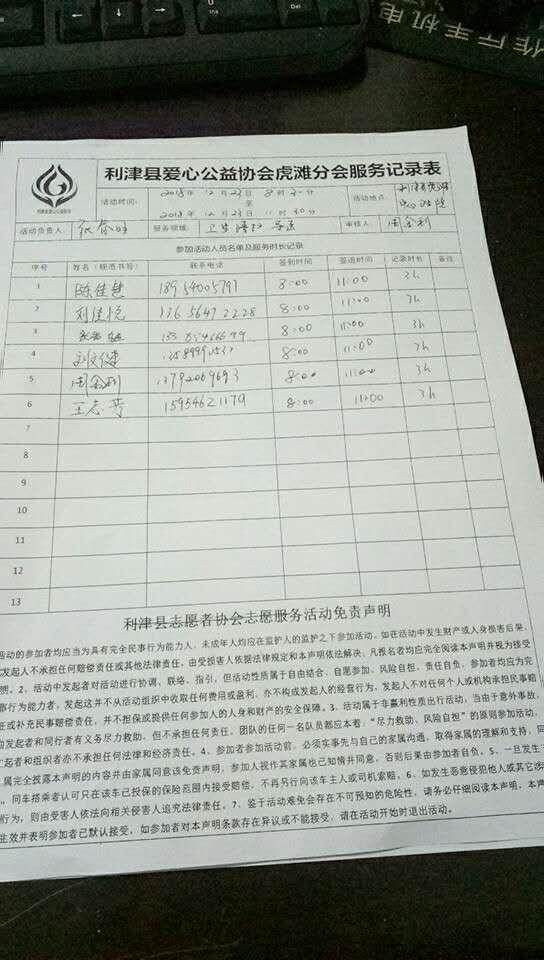 作厅手机电
Del
利津县爱心公益协会
利津县爱心公益协会虎滩分会服务记录表
活动时间: 2018年12月23日8时30分
至
2018年12月23日11时30分
活动地点:
活动负责人: 服务领域: 卫生清扫 审核人: 周金利
参加活动人员名单及服务时长记录
序号 姓名(规范书写) 联系电话 签到时间 签退时间 记录时长 备注
1 陈佳慧 18954005797 8:00 11:00 3h
2 刘佳悦 13656472228 8:00 11:00 3h
3 8:00 11:00 3h
4 刘文俊 8:00 11:00 3h
5 周金利 13792069693 8:00 11:00 3h
6 王志芳 15954621179 8:00 11:00 3h
7
8
9
10
11
12
13
利津县志愿者协会志愿服务活动免责声明
活动的参加者均应当为具有完全民事行为能力人，未成年人均应在监护人的监护之下参加活动。如在活动中发生财产或人身损害后果，
发起人不承担任何赔偿责任或其他法律责任，由受损害人依据法律规定和本声明依法解决，凡报名者均应完全阅读本声明并视为接受
明。2、活动中发起者对活动进行协调、联络、指引，但活动性质属于自由结合、自愿参加、风险自担、责任自负，参加者均应为完
事行为能力者，发起这并不从活动组织中收取任何费用或盈利，亦不构成发起人的经营行为，发起人不对任何个人或机构承担民事赔
任或补充民事赔偿责任，并不担保或提供任何参加人的人身和财产的安全保障。3、活动属于非赢利性质出行活动，当由于意外事故，
动发起者和同行者有义务尽力救助，但不承担任何责任，团队的任何一名队员都应本着：“尽力救助、风险自担”的原则参加活动，
起者和组织者亦不承担任何法律和经济责任。4、参加者参加活动前，必须实事先与自己的家属沟通，取得家属的理解和支持，同
属完全披露本声明的内容并由家属同意该免责声明，参加人视作其家属也已知情并同意，否则后果由参加者自负。5、一旦发生
，同车搭乘者认可只在该车已投保的保险范围内接受赔偿，不再另行向该车主人或司机索赔。6、如发生恶意侵犯他人或其它涉
行为，则由受害人依法向相关侵害人追究法律责任。7、鉴于活动难免会存在不可预知的危险性，请务必仔细阅读本声明，本声
生效并表明参加者已默认接受，如参加者对本声明条款存在异议或不能接受，请在活动开始时退出活动。